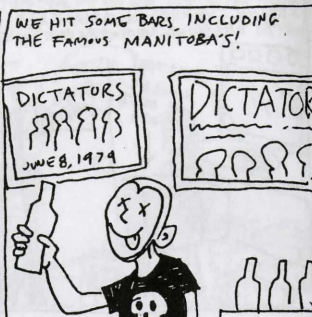 WE HIT SOME BARS, INCLUDING
THE FAMOUS MANITOBA'S!
DICTATORS
JUNE 8, 1979
DICTATOR